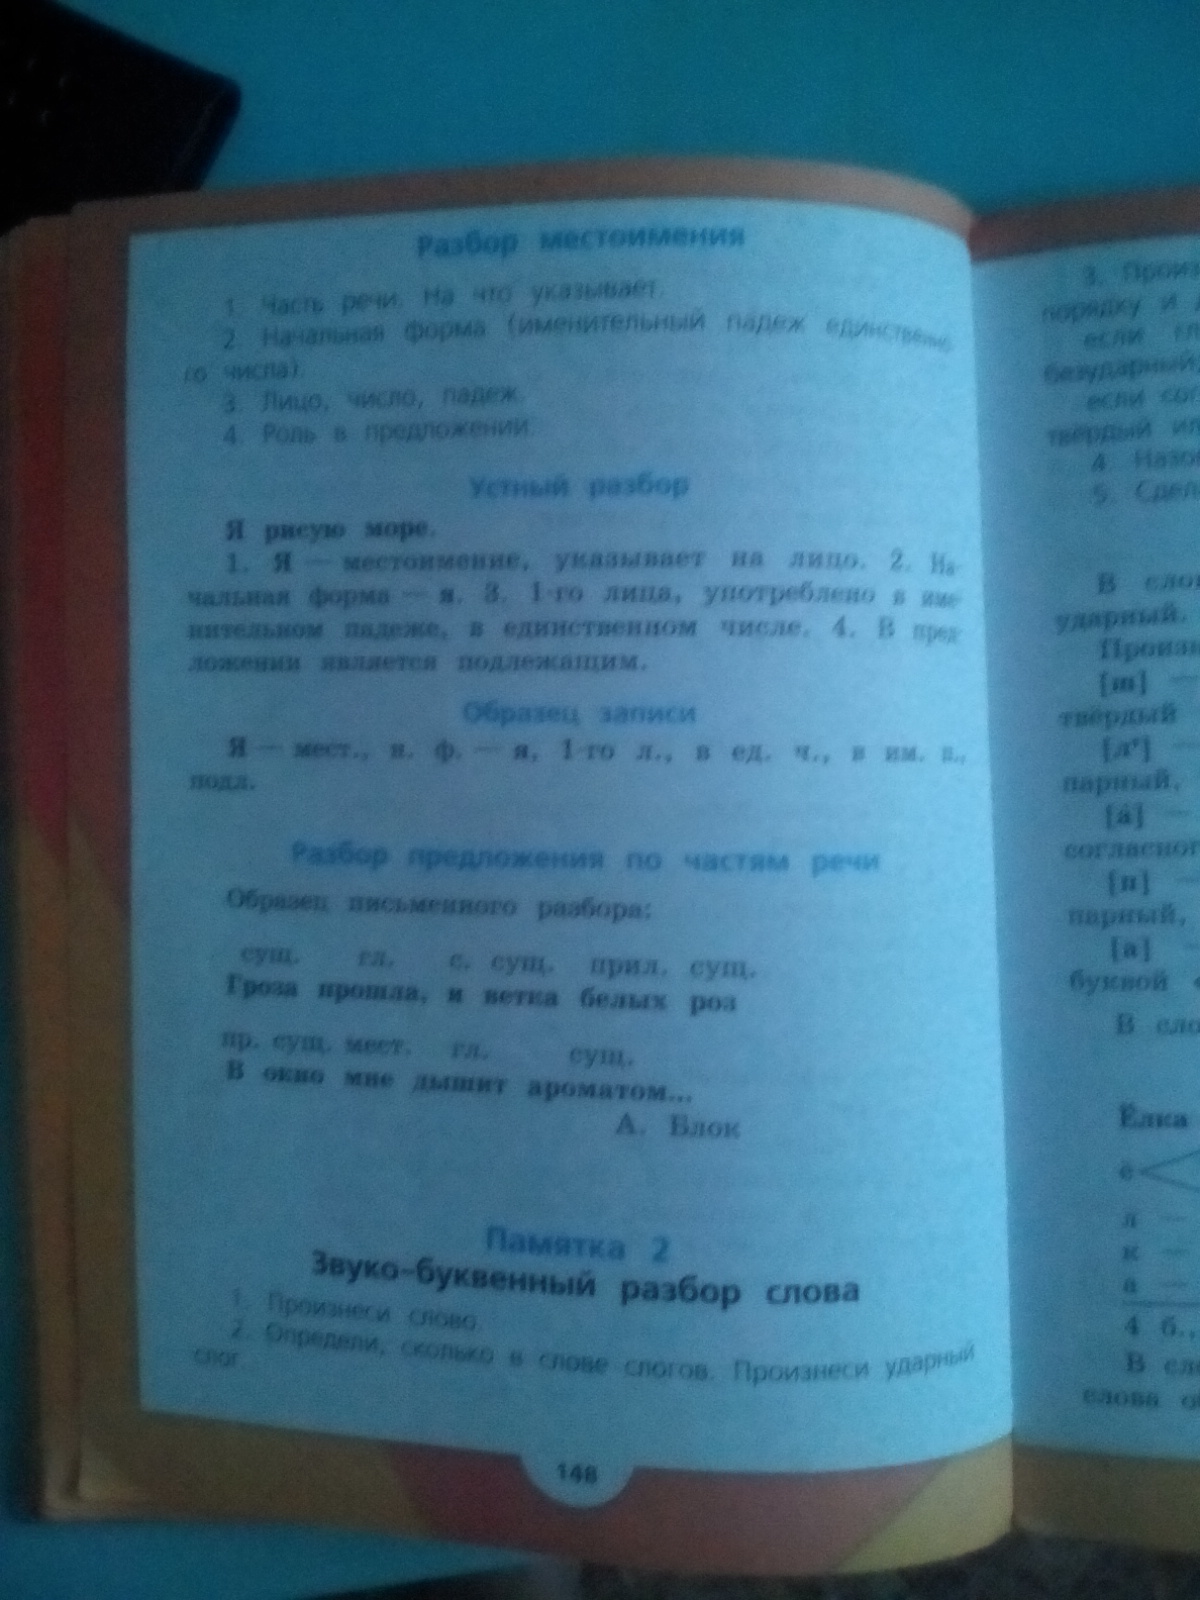 Разбор местоимения
1. Часть речи. На что указывает.
2. Начальная форма (именительный падеж единственно-
го числа).
3. Лицо, число, падеж.
4. Роль в предложении.
Устный разбор
Я рисую море.
1. Я — местоимение, указывает на лицо. 2. На-
чальная форма — я. 3. 1-го лица, употреблено в име-
нительном падеже, в единственном числе. 4. В пред-
ложении является подлежащим.
Образец записи
Я — мест., н. ф. — я, 1-го л., в ед. ч., в им. п.,
подл.
Разбор предложения по частям речи
Образец письменного разбора:
сущ. гл. с. сущ. прил. сущ.
Гроза прошла, и ветка белых роз
пр. сущ. мест. гл. сущ.
В окно мне дышит ароматом...
А. Блок
Памятка 2
Звуко-буквенный разбор слова
1. Произнеси слово.
2. Определи, сколько в слове слогов. Произнеси ударный
слог.
148
порядку и
если
безударный,
если
твёрдый
4.
5.
В
ударный.
[ш] —
твёрдый
[л'] —
парный,
[á] —
[п] —
парный,
[а] —
буквой
В
Ёлка
ё
л —
к —
а —
4 б.,
В
слова